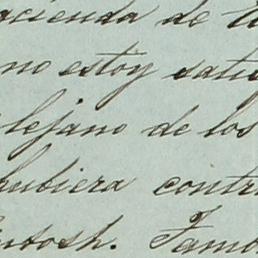 acienda de
no estoy satis
lejano de los
hubiera contr
intosh. Tamb